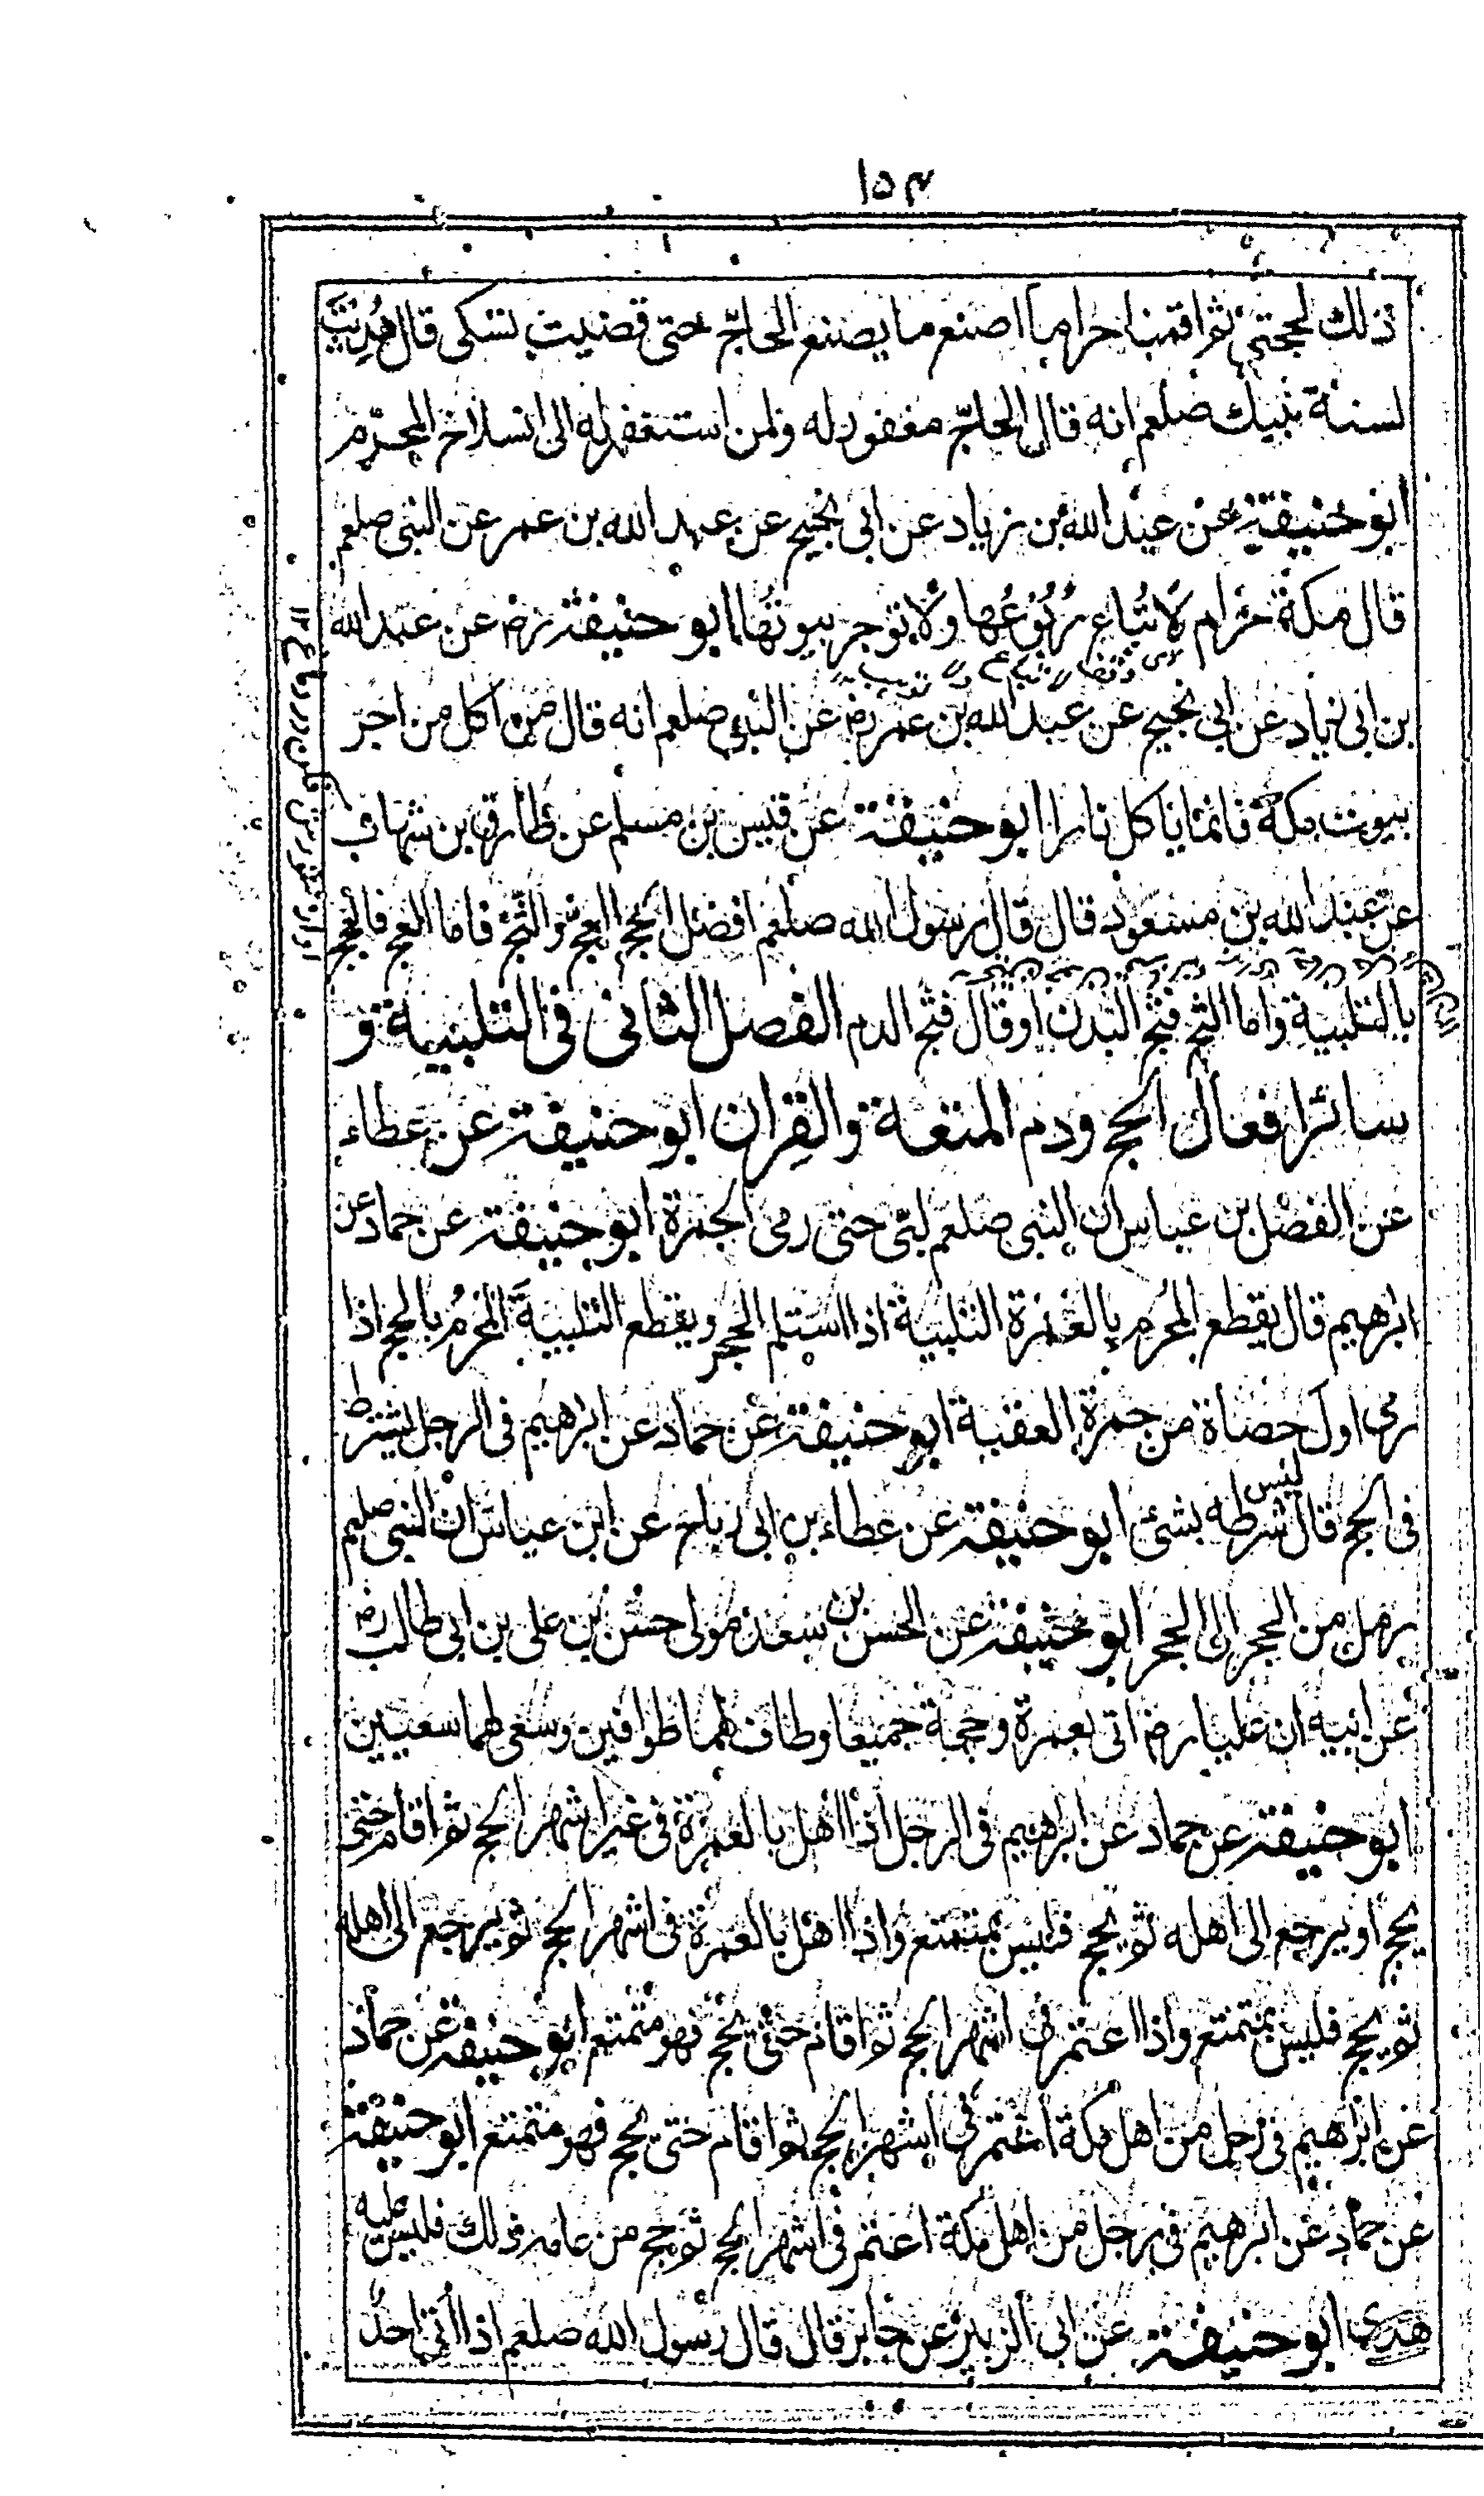 ١٥٣
ذلك لحجتى ثم اقمنا حراما اصنع ما يصنع الحاج حتى قضيت نسكى قال هُدِيتَ
لسنة نبيك صلعم انه قال الحاج مغفور له ولمن استغفر له الى انسلاخ المحرّم
ابو حنيفة عن عبد الله بن زياد عن ابى نجيح عن عبد الله بن عمر عن النبى صلعم
قال مكة حرام لا تُباع رُبُوعُها ولا توجر بيوتها ابو حنيفة رض عن عبد الله
بن ابى زياد عن ابى نجيح عن عبد الله بن عمر رض عن النبى صلعم انه قال من اكل من اجر
بيوت مكة فانما ياكل نارا ابو حنيفة عن قيس بن مسلم عن طارق بن شهاب
عن عبد الله بن مسعود قال قال رسول الله صلعم افضل الحج العج والثج فاما العج فالعج
بالتلبية واما الثج فثج البدن او قال فثج الدم الفصل الثانى فى التلبية و
سائر افعال الحج ودم المتعة والقِران ابو حنيفة عن عطاء
عن الفضل بن عباس ان النبى صلعم لبّى حتى رمى الجمرة ابو حنيفة عن حماد عن
ابرهيم قال يقطع المحرم بالعمرة التلبية اذا استلم الحجر ويقطع التلبيةَ المحرمُ بالحج اذا
رمى اول حصاة من جمرة العقبة ابو حنيفة عن حماد عن ابرهيم فى الرجل يشترط
فى الحج قال ليس شرطه بشئ ابو حنيفة عن عطاء بن ابى رباح عن ابن عباس ان النبى صلعم
رمل من الحجر الى الحجر ابو حنيفة عن الحسن بن سعد مولى حسن بن على بن ابى طالب رض
عن ابيه ان عليا رض اتى بعمرة وحجة جميعا وطاف لهما طوافين وسعى لهما سعيين
ابو حنيفة عن حماد عن ابرهيم فى الرجل اذا اهل بالعمرة فى غير اشهر الحج ثم اقام حتى
يحج او يرجع الى اهله ثم يحج فليس بمتمتع واذا اهل بالعمرة فى اشهر الحج ثم يرجع الى اهله
ثم يحج فليس بمتمتع واذا اعتمر فى اشهر الحج ثم اقام حتى يحج فهو متمتع ابو حنيفة عن حماد
عن ابرهيم فى رجل من اهل مكة اعتمر فى اشهر الحج ثم اقام حتى يحج فهو متمتع ابو حنيفة
عن حماد عن ابرهيم فى رجل من اهل مكة اعتمر فى اشهر الحج ثم حج من عامه ذلك فليس عليه
هدى ابو حنيفة عن ابى الزبير عن جابر قال قال رسول الله صلعم اذا اتى احد